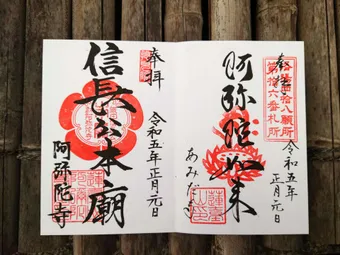 奉拝
阿弥陀如来
あみだ寺
令和五年
正月元日
第拾六番札所
蓮台山
奉拝
信長公本廟
令和五年正月元日
阿弥陀寺